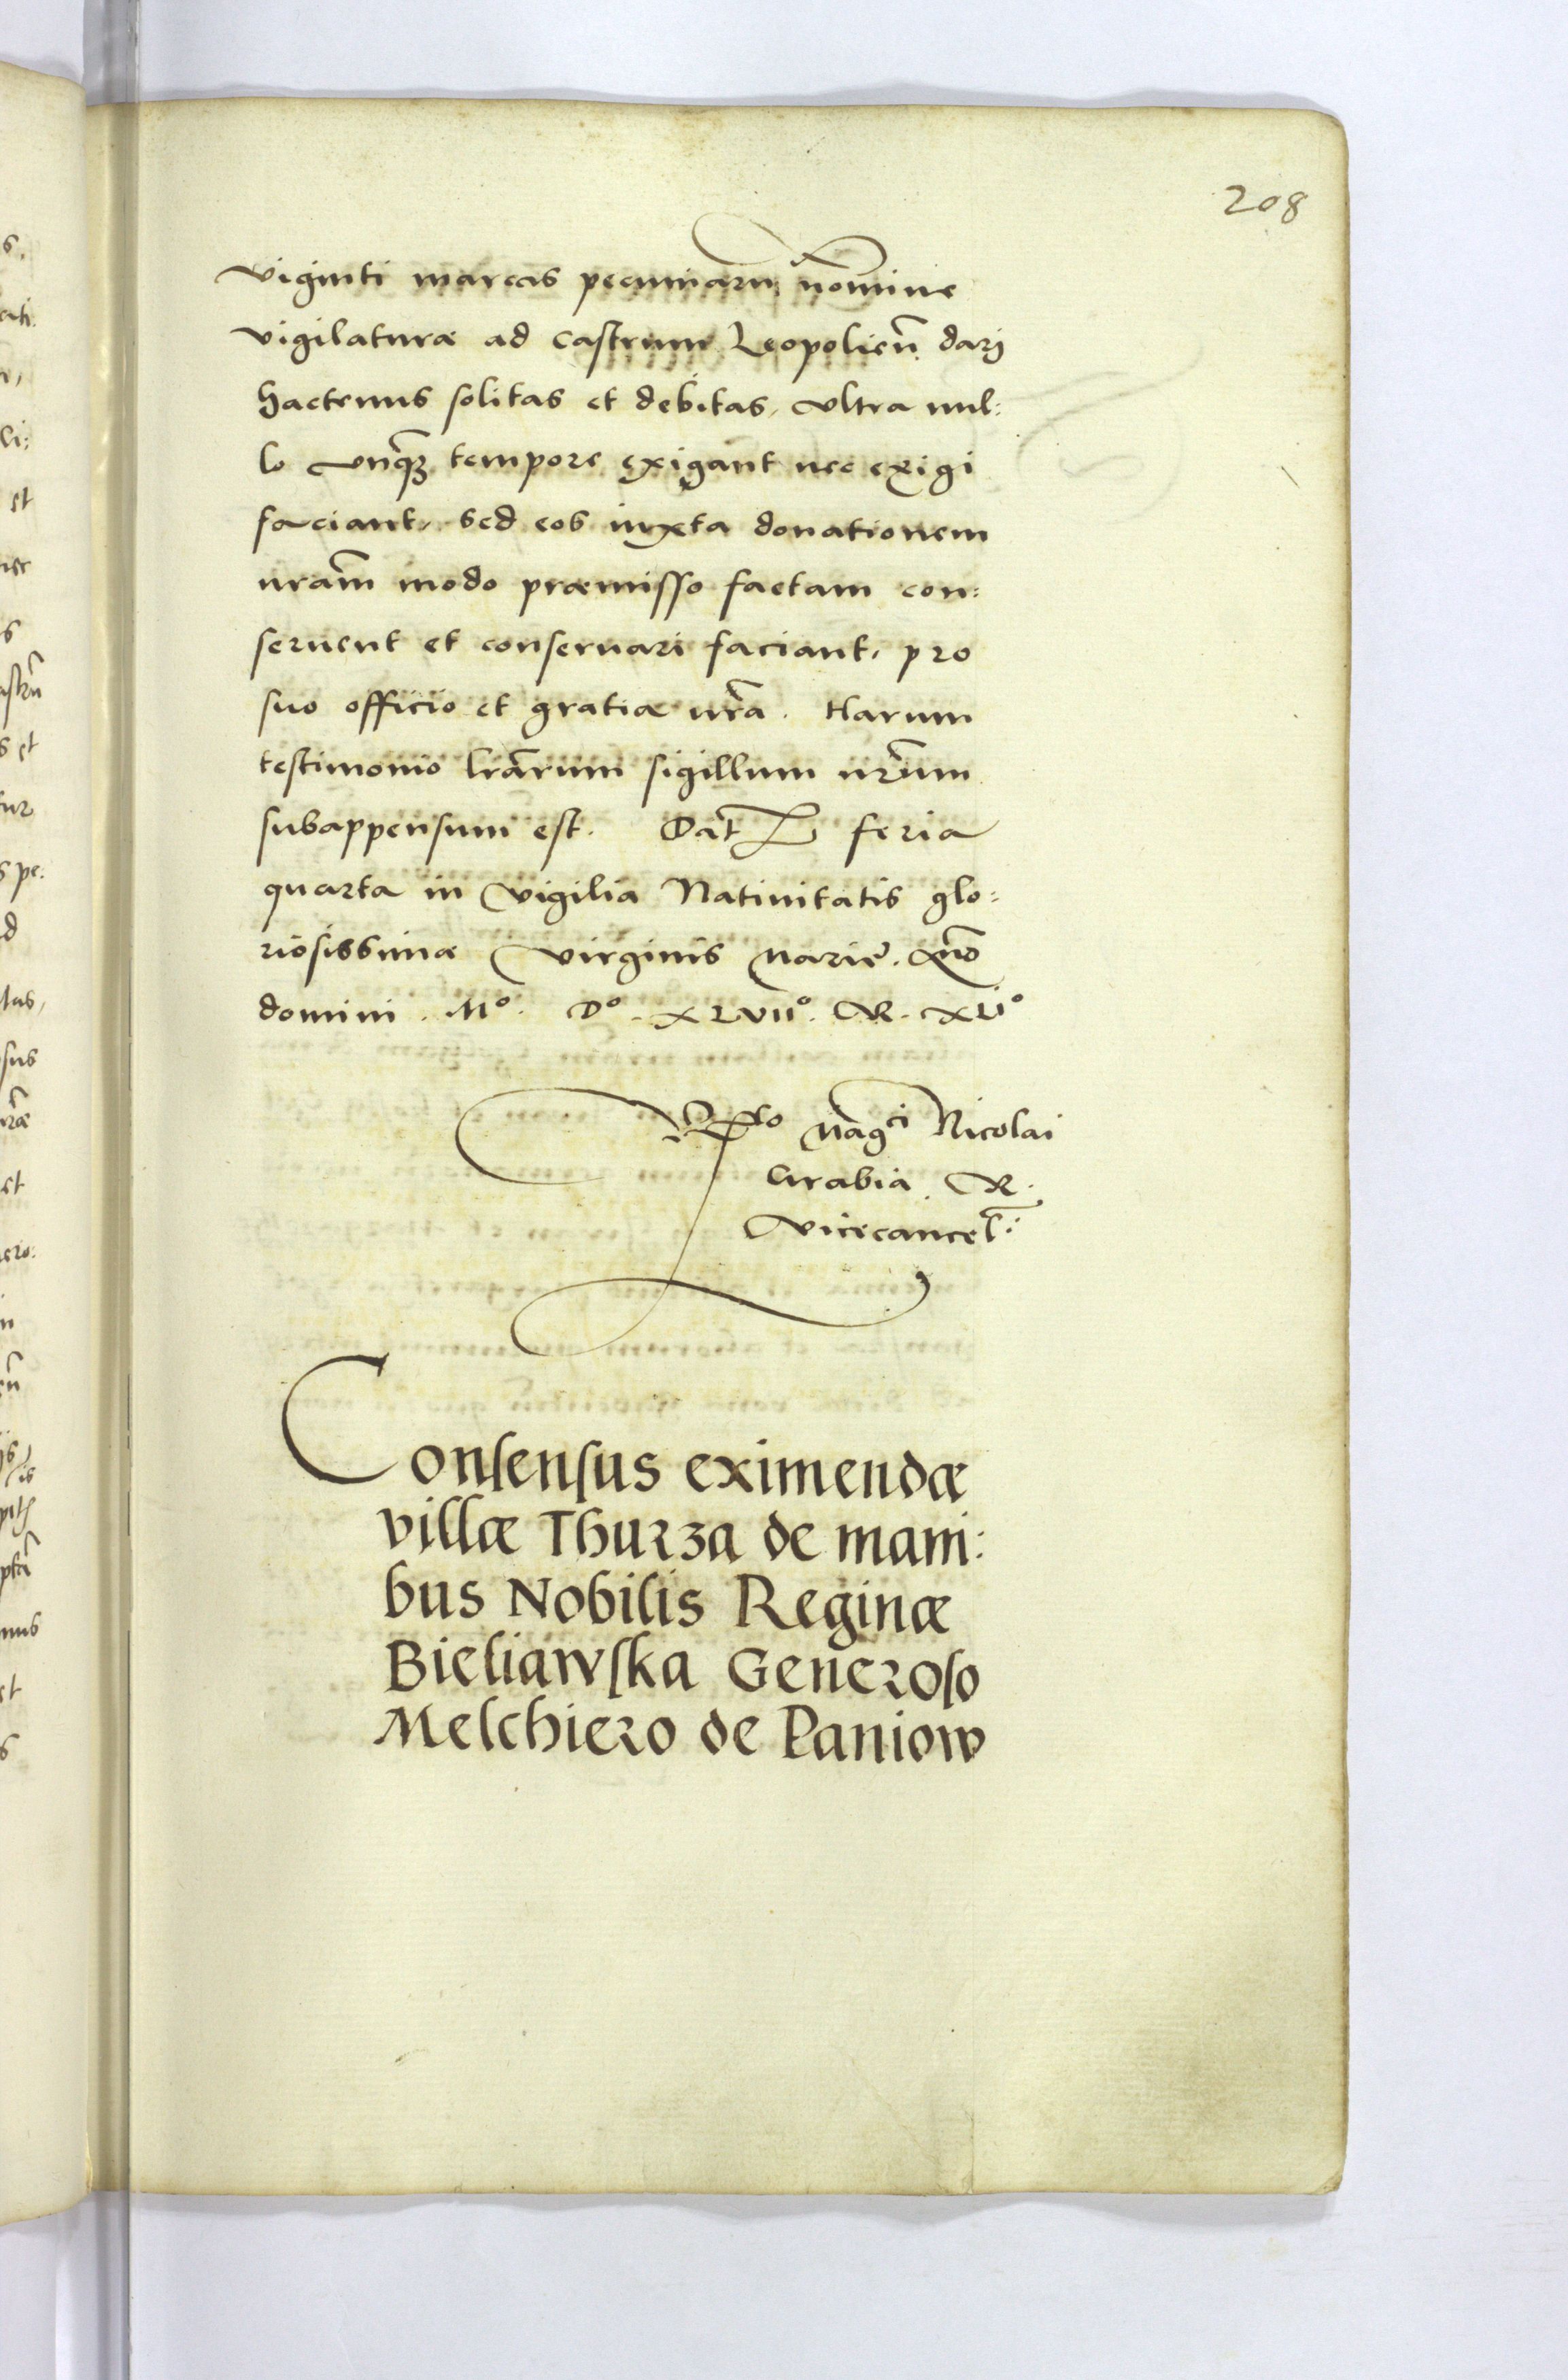 208
viginti marcas pecuniaru nomine
vigilaturæ ad castrum Leopolien̄ dari
hactenus solitas et debitas, ultra nul:
lo unq̃ꝫ tempore exigant nec exigi
faciant, sed eos iuxta donationem
nrãm modo præmisso factam con:
seruent et conseruari faciant, pro
suo officio et gratiæ nrã. Harum
testimonio lrãrum sigillum nrũm
subappensum est. Dat feria
quarta in vigilia Natiuitatis glo:
riosissimæ virginis Marię. Año
domini. Mº. Dº. XLVIIº. R. XLIº
Rlo Magci Nicolai
Grabia. R.
Vicecancel:
Consensus eximendæ
villæ Thurza de mani:
bus Nobilis Reginæ
Bieliawska Generoso
Melchiero de Paniow